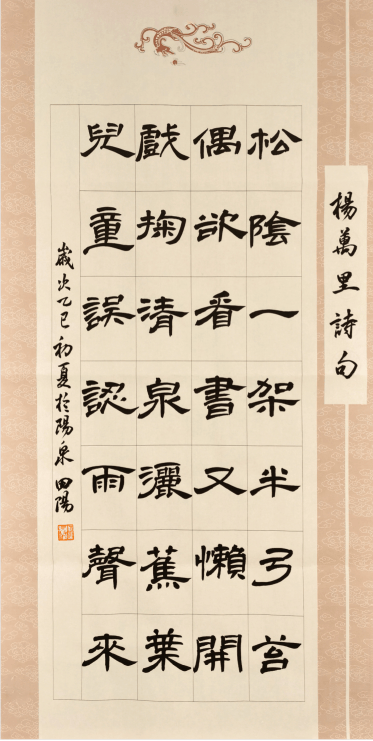 楊萬里詩句
松陰一架半弓苔
偶欲看書又懶開
戲掬清泉灑蕉葉
兒童誤認雨聲來
歲次乙巳初夏於陽泉田陽